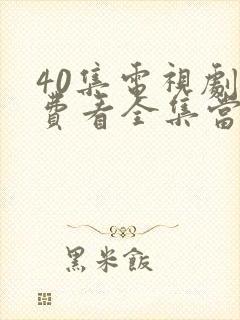 40集電視劇
費看全集當
黑米飯